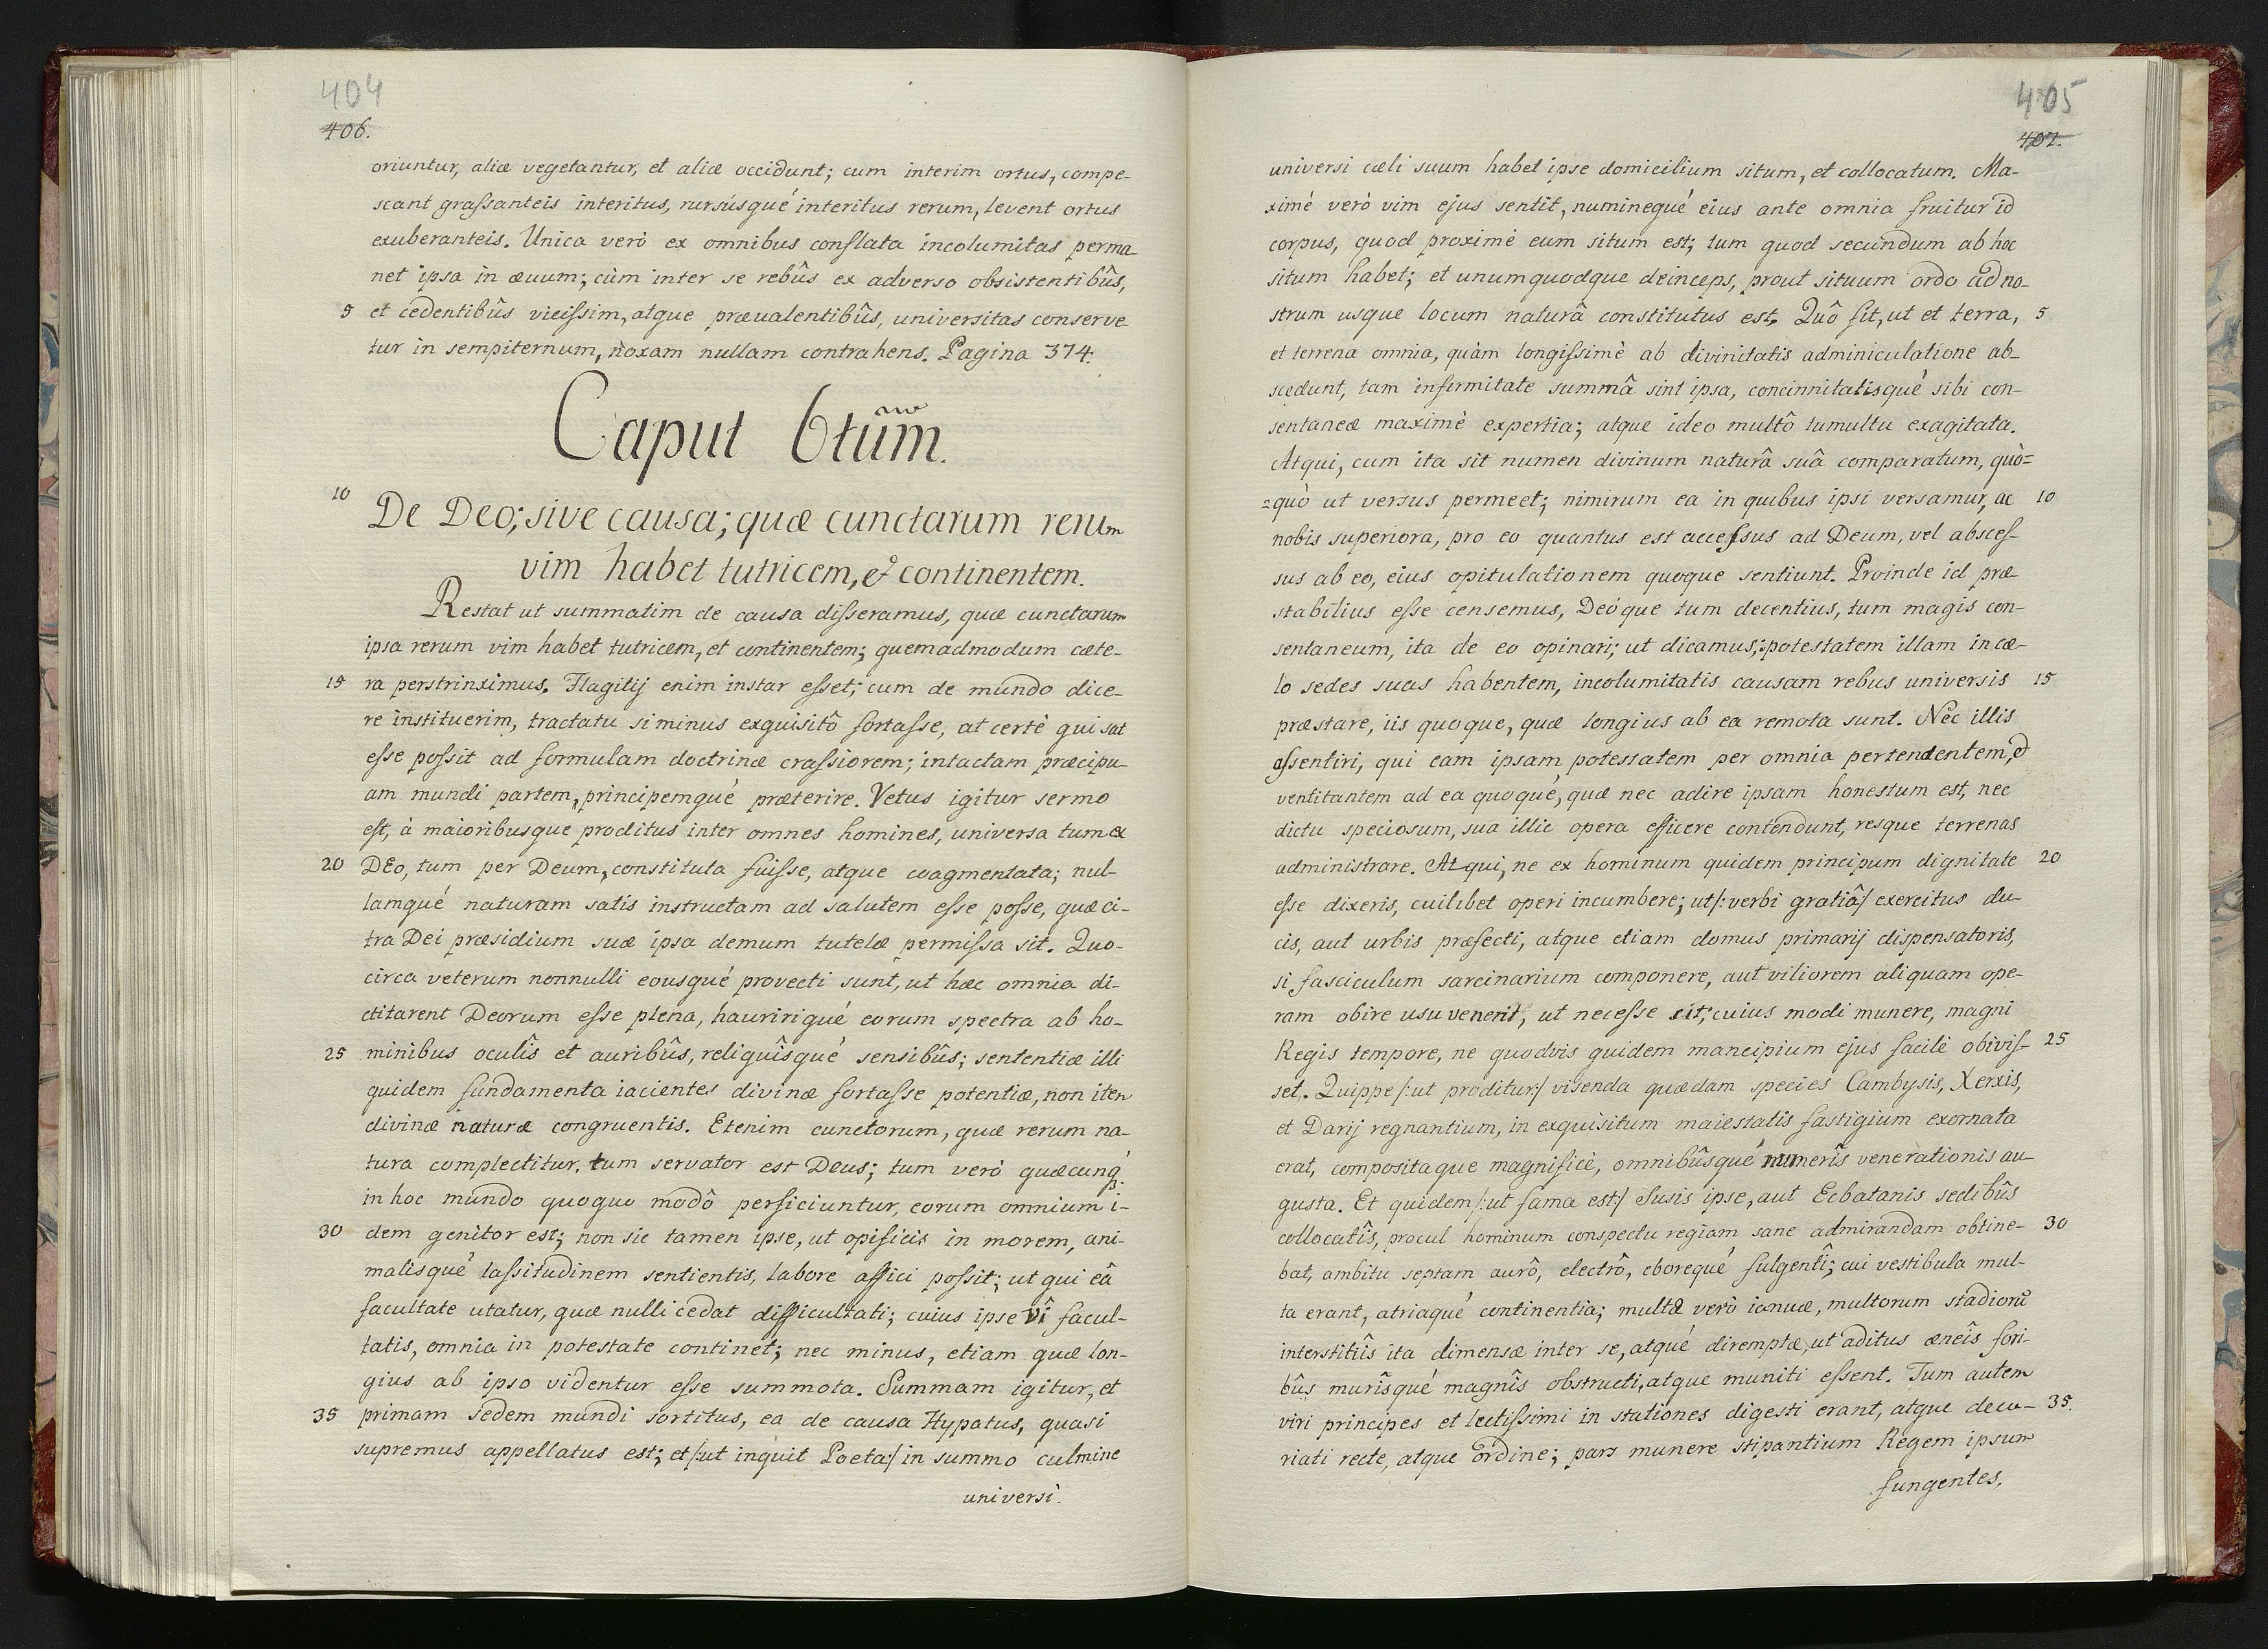 404
406.
oriuntur, aliæ vegetantur, et aliæ occidunt; cum interim ortus, compe-
scant graſsanteis interitus, rursúsqué interitus rerum, levent ortus
exuberanteis. Unica verò ex omnibus conflata incolumitas perma-
net ipsa in æuum; cùm inter se rebûs ex adverso obsistentibûs,
5 et cedentibûs viciſsim, atque præualentibûs, universitas conserve
tur in sempiternum, noxam nullam contrahens. Pagina 374.
Caput 6tum.
10 De Deo; sive causa; quæ cunctarum rerum
vim habet tutricem, & continentem.
Restat ut summatim de causa diſseramus, quæ cunctarum
ipsa rerum vim habet tutricem, et continentem; quemadmodum cæte-
15 ra perstrinximus. Flagitij enim instar eſset; cum de mundo dice-
re instituerim, tractatu si minus exquisitô fortaſse, at certè qui sat
eſse poſsit ad formulam doctrinæ craſsiorem; intactam præcipu-
am mundi partem, principemqué præterire. Vetus igitur sermo
est, à maioribusque proditus inter omnes homines, universa tum ex
20 DEo, tum per Deum, constituta fuiſse, atque coagmentata; nul-
lamqué naturam satis instructam ad salutem eſse poſse, quæ ci-
tra Dei præsidium suæ ipsa demum tutelæ permiſsa sit. Quo-
circa veterum nonnulli eousqué provecti sunt, ut hæc omnia di-
ctitarent Deorum eſse plena, haurirìqué eorum spectra ab ho-
25 minibus oculîs et auribûs, reliquîsqué sensibûs; sententiæ illi
quidem fundamenta iacientes divinæ fortaſse potentiæ, non item
divinæ naturæ congruentis. Etenim cunctorum, quæ rerum na-
tura complectitur, tum servator est Deus; tum verò quæcunq.
in hoc mundo quoquo modô perficiuntur, eorum omnium i-
30 dem genitor est; non sic tamen ipse, ut opificis in morem, ani-
malisqué laſsitudinem sentientis, labore affici poſsit; ut qui eâ
facultate utatur, quæ nulli cedat difficultati; cuius ipse vî facul-
tatis, omnia in potestate continet; nec minus, etiam quæ lon-
gius ab ipso videntur eſse summota. Summam igitur, et
35 primam sedem mundi sortitus, ea de causa Hypatus, quasi
supremus appellatus est; et /:ut inquit Poeta:/ in summo culmine
universi.
405
407.
universi cæli suum habet ipse domicilium situm, et collocatum. Ma-
ximè verò vim ejus sentit, numinequé eius ante omnia fruitur id
corpus, quod proximè eum situm est; tum quod secundum ab hoc
situm habet; et unumquodque deinceps, prout situum ordo ad no-
strum usque locum naturâ constitutus est. Quô fit, ut et terra, 5
et terrena omnia, quàm longiſsimè ab divinitatis adminiculatione ab-
scedunt, tam infirmitate summâ sint ipsa, concinnitatisqué sibi con-
sentaneæ maximè expertia; atque ideo multô tumultu exagitata.
Atqui, cum ita sit numen divinum naturâ suâ comparatum, quò=
=quò ut versus permeet; nimirum ea in quibus ipsi versamur, ac 10
nobis superiora, pro eo quantus est acceſsus ad Deum, vel absceſ-
sus ab eo, eius opitulationem quoque sentiunt. Proinde id præ-
stabilius eſse censemus, Deóque tum decentius, tum magis con-
sentaneum, ita de eo opinari; ut dicamus; potestatem illam in cæ-
lo sedes suas habentem, incolumitatis causam rebus universis 15
præstare, iis quoque, quæ longius ab ea remota sunt. Nec illis
aſsentiri, qui eam ipsam potestatem per omnia pertendentem, &
ventitantem ad ea quoqué, quæ nec adire ipsam honestum est, nec
dictu speciosum, sua illic opera efficere contendunt, resque terrenas
administrare. Atqui, ne ex hominum quidem principum dignitate 20
eſse dixeris, cuilibet operi incumbere; ut /:verbi gratiâ:/ exercitus du-
cis, aut urbis præfecti, atque etiam domus primarij dispensatoris,
si fasciculum sarcinarium componere, aut viliorem aliquam ope-
ram obire usu venerit, ut neceſse sit; cuius modi munere, magni
Regis tempore, ne quodvis quidem mancipium ejus facilè obiviſ- 25
set. Quippe /:ut proditur:/ visenda quædam species Cambysis, Xerxis,
et Darij regnantium, in exquisitum maiestatis fastigium exornata
erat, compositaque magnificè, omnibûsqué numerîs venerationis au-
gusta. Et quidem /:ut fama est:/ Susis ipse, aut Ecbatanis sedibûs
collocatîs, procul hominum conspectu regiam sane admirandam obtine- 30
bat, ambitu septam aurô, electrô, eborequé fulgentî; cui vestibula mul-
ta erant, atriaqué continentia; multæ verò ianuæ, multorum stadiorū
interstitîis ita dimensæ inter se, atqué diremptæ, ut aditus æneîs fori-
bûs murîsqué magnîs obstructi, atque muniti eſsent. Tum autem
viri principes et lectiſsimi in stationes digesti erant, atque decu- 35.
riati recte, atque ordine; pars munere stipantium Regem ipsum
fungentes.